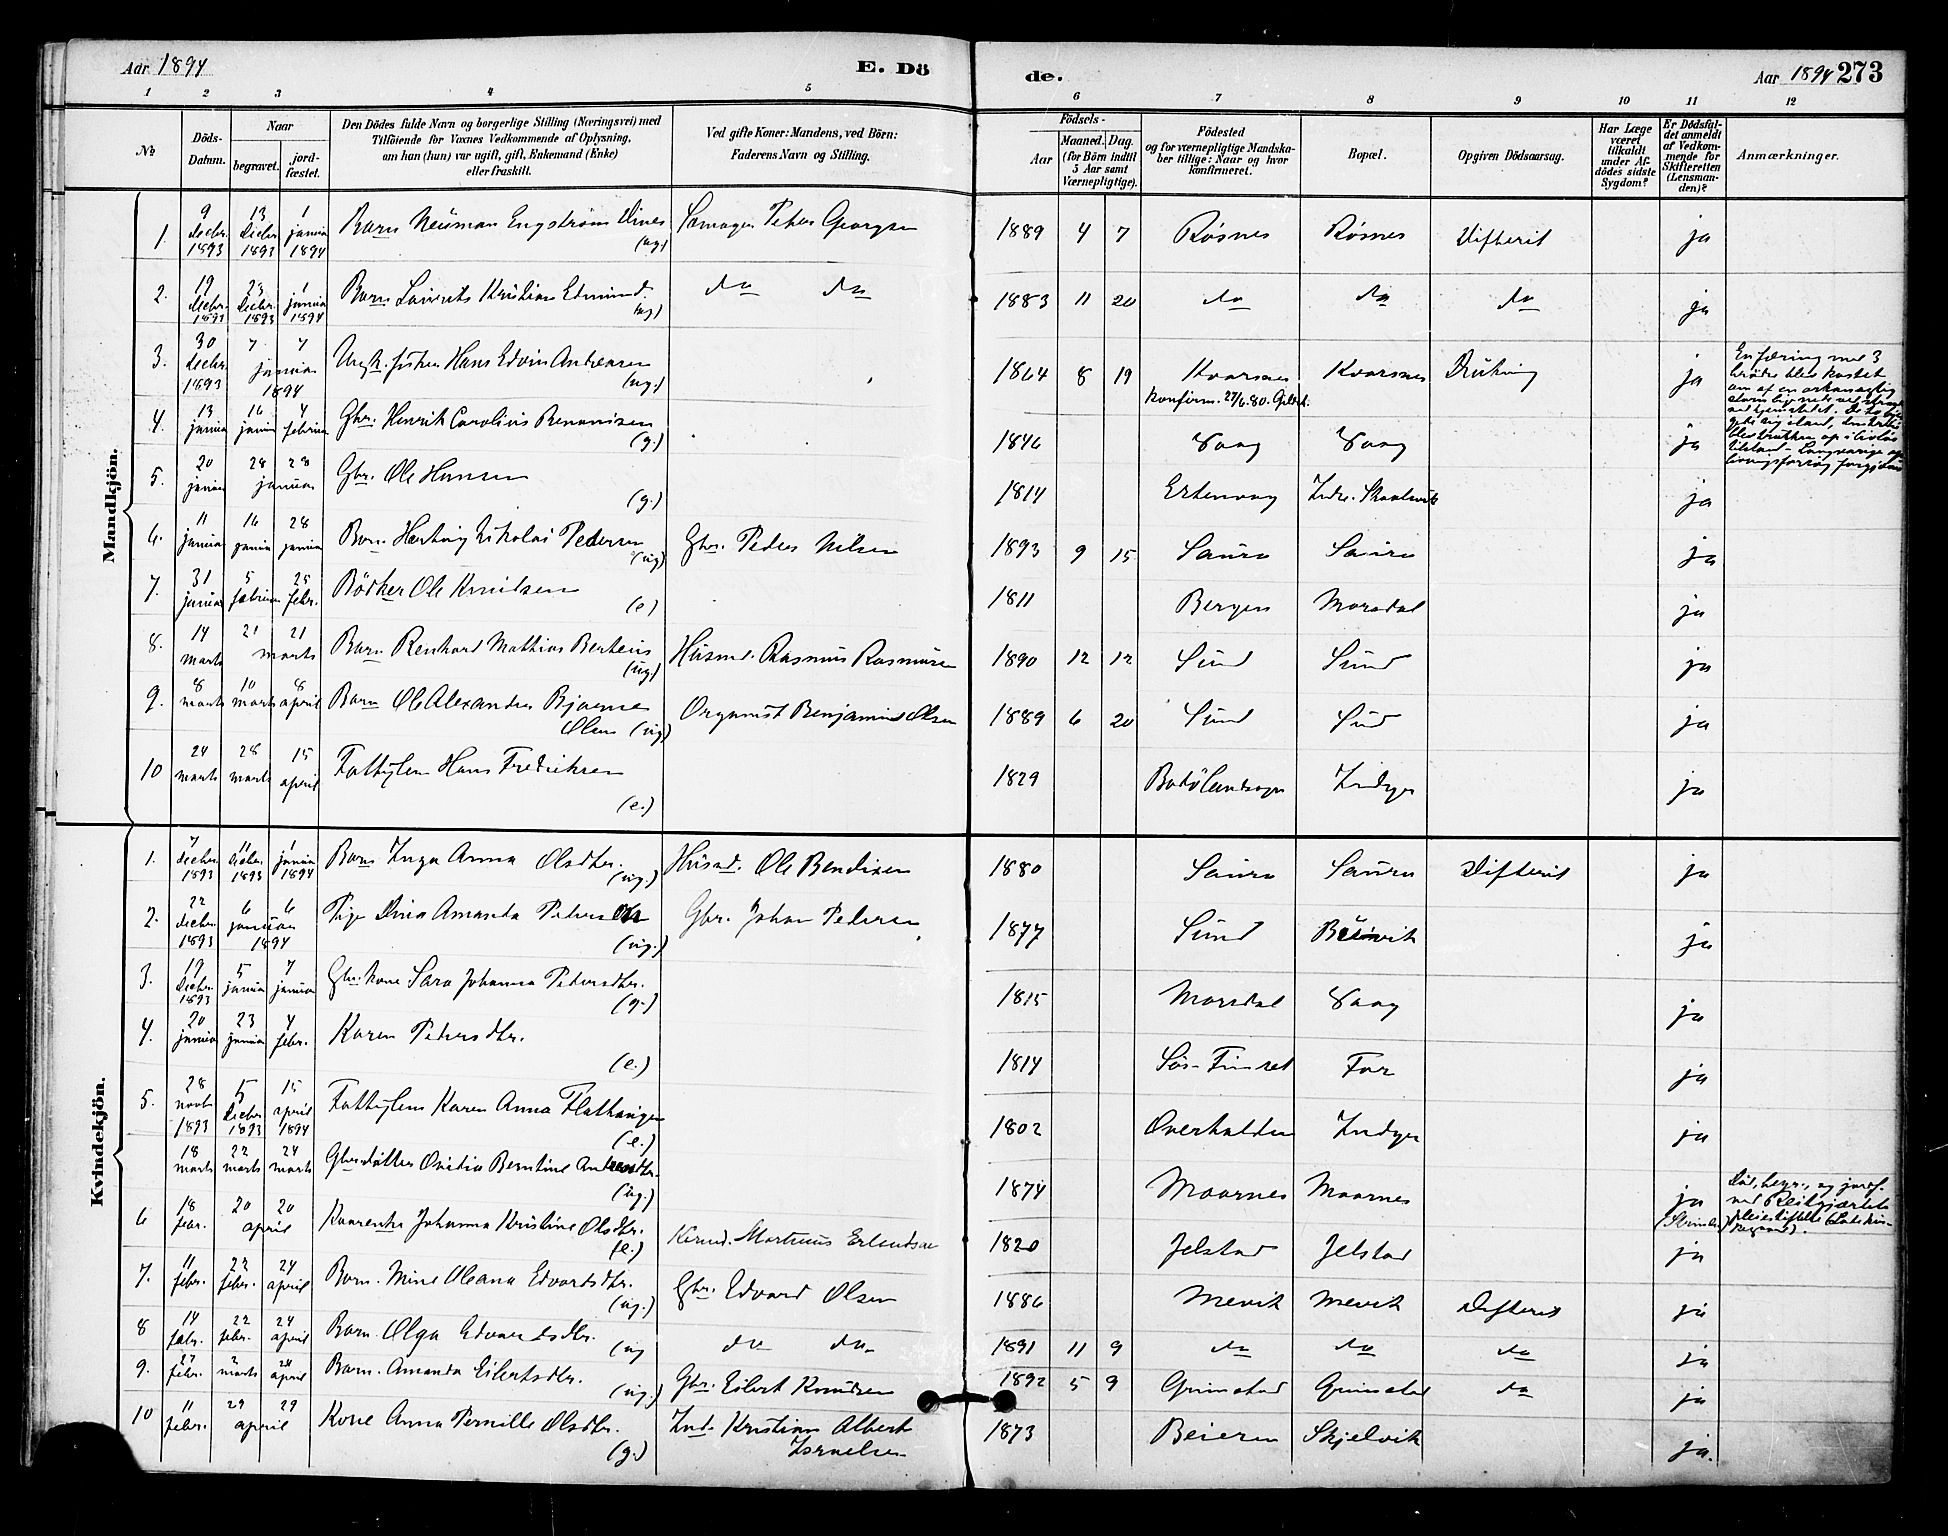 Aar 1894
E. Dö
de.
Aar 1894 273
1 2 3 4 5 6 7 8 9 10 11 12
№
Döds-
Datum.
Naar
begravet.
jord-
fæstet.
Den Dödes fulde Navn og borgerlige Stilling (Næringsvei) med
Tilföiende for Voxnes Vedkommende af Oplysning,
om han (hun) var ugift, gift, Enkemand (Enke)
eller fraskilt.
Ved gifte Koner: Mandens, ved Börn:
Faderens Navn og Stilling.
Födsels-
Aar
Maaned. Dag.
(for Börn indtil
5 Aar samt
Værnepligtige).
Födested
og for værnepligtige Mandska-
ber tillige: Naar og hvor
konfirmeret.
Bopæl.
Opgiven Dödsaarsag.
Har Læge
været
tilkaldt
under Af-
dödes sidste
Sygdom?
Er Dödsfal-
det anmeldt
af Vedkom-
mende for
Skifteretten
(Lensman-
den)?
Anmærkninger.
Mandkjön.
1. 9 Decbr. 1893 13 Decbr. 1893 1 januar 1894 Barn Neuman Engstrøm Dines (ug) Peder Georgsen 1889 4 7 Røsnes Røsnes Difterit ja
2. 19 Decbr. 1893 23 Decbr. 1893 1 januar 1894 Barn Laurits Kristian Edmund (ug) do do 1883 11 20 do do do ja
3. 30 Decbr. 1893 7 7 januar 1894 Ungk. Fisker Hans Edvin Andreasen (ug.) 1864 8 19 Kvarsnes Konfirm. 27/6. 80. Gildsk. Kvarsnes Drukning ja En færing med 3
brødre blev kastet
om af en orkanagtig
4. 13 januar 16 januar 4 februar Gbr. Henrik Carolius Benonisen (g.) 1846 Vaag Vaag ja
5. 20 januar 28 28 januar Gbr. Ole Hansen (g.) 1814 Ertenvaag Indre-Skaalsvik ja
6. 11 januar 16 januar 28 januar Barn Hartvig Nikolai Pedersen (ug) Gbr. Peder Nilsen 1893 9 15 Saura Saura ja
7. 31 januar 5 februar 25 febr. Bödker Ole Knudsen (e) 1811 Bergen Morsdal ja
8. 14 marts 21 21 marts Barn Renhard Mathias Berteus (ug.) Husmd. Rasmus Rasmusen 1890 12 12 Sund Sund ja
9. 8 marts 10 marts 8 april Barn Ole Alexander Bjarne Olsen (ug) Organist Benjamin Olsen 1889 6 20 Sund Sund ja
10 24 marts 28 marts 15 april Fattiglem Hans Fredriksen (e.) 1829 Bodö Landsogn Indyr ja
Kvindekjön.
1. 7 Decbr. 1893 11 Decbr. 1893 1 januar 1894 Barn Inga Anna Olsdtr. (ug.) Husmd. Ole Bendixen 1880 Saura Saura Difterit ja
2. 22 Decbr. 1893 6 6 januar 1894 Pige Dina Amanda Pedersdtr (ug.) Gbr. Johan Pedersen 1877 Sund ja
3. 19 Decbr. 1893 5 januar 7 januar Gbr. kone Sara Johanna Pedersdtr. (g.) 1815 Morsdal Vaag ja
4. 20 januar 23 januar 4 febr. Karen Pedersdtr. (e.) 1814 For ja
5. 28 novbr 1893 5 Decbr 1893 15 april 1894 Fattiglem Karen Anna Flathaugen (e.) 1802 Overhalden Indyr ja
18 marts 22 marts 24 marts Gbrdatter Ovidia Berntine Andreasdtr. (ug.) 1874 Maarnes Maarnes ja Död, begr., og jordf.
ved Reitgjærdets
pleiestiftelse
6 18 febr. 20 20 april Kaarenke Johanna Kristine Olsdtr. (e.) Martinus Erlandsen 1820 Jelstad Jelstad ja
7. 11 febr. 22 febr. 24 april Barn. Mine Oleana Edvardsdtr. (ug.) Gbr. Edvard Olsen 1886 Mevik Mevik Difterit ja
8 14 febr. 22 febr. 24 april Barn. Olga Edvardsdtr. (ug do do 1891 11 9 do do do ja
9. 27 febr. 2 marts 24 april Barn. Amanda Eilertsdtr. (ug.) Gbr. Eilert Knudsen 1892 5 9 Grimstad Grimstad do ja
10 11 febr. 29 29 april Kone Anna Pernille Olsdtr. (g.) Ind. Kristian Albert Isrnelsen 1873 Beieren Skjelvik ja.